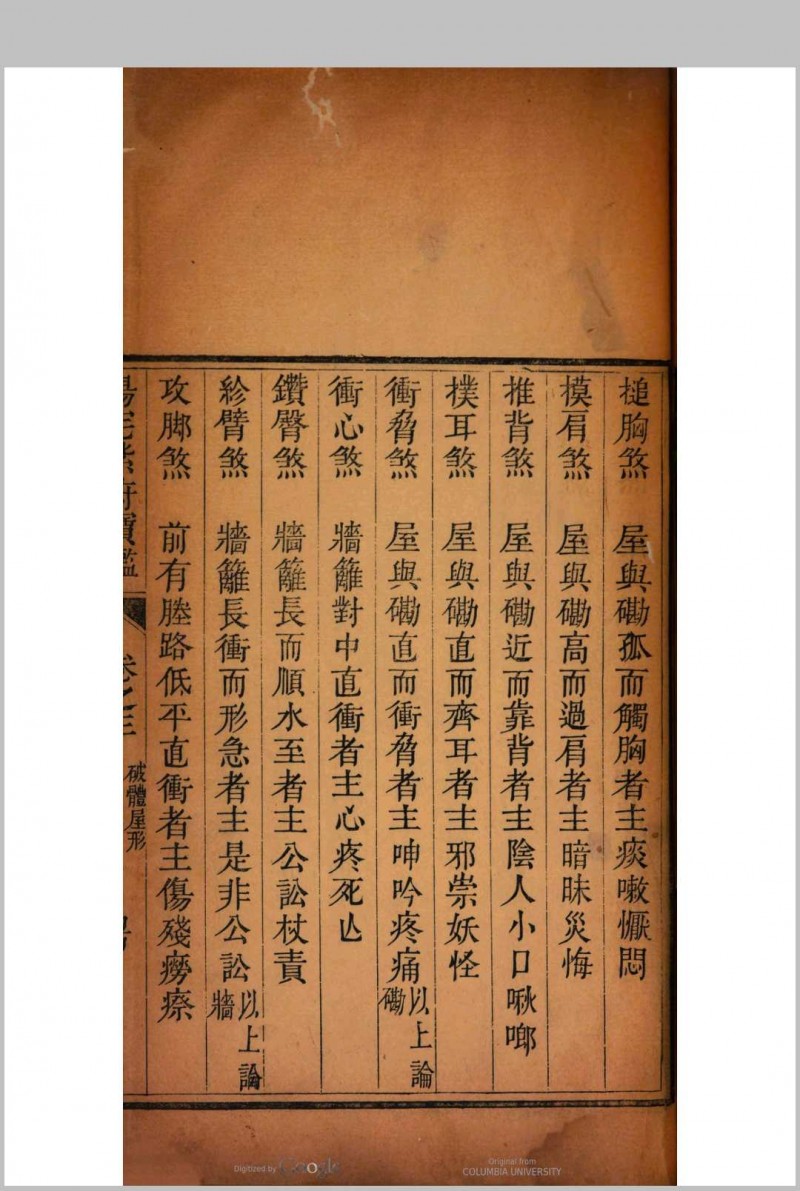 槌胸煞　屋與磡孤而觸胸者主痰嗽懨悶
摸肩煞　屋與磡高而過肩者主暗昧災悔
推背煞　屋與磡近而靠背者主陰人小口啾唧
撲耳煞　屋與磡直而齊耳者主邪祟妖怪
衝脅煞　屋與磡直而衝脅者主呻吟疼痛以上論磡
衝心煞　牆籬對中直衝者主心疼死亡
鑽臀煞　牆籬長而順水至者主公訟杖責
紾臂煞　牆籬長衝而形急者主是非公訟以上論牆
攻脚煞　前有塍路低平直衝者主傷殘癆瘵
陽宅紫府寶鑑　卷之三　破體屋形
Digitized by Google
Original from
COLUMBIA UNIVERSITY